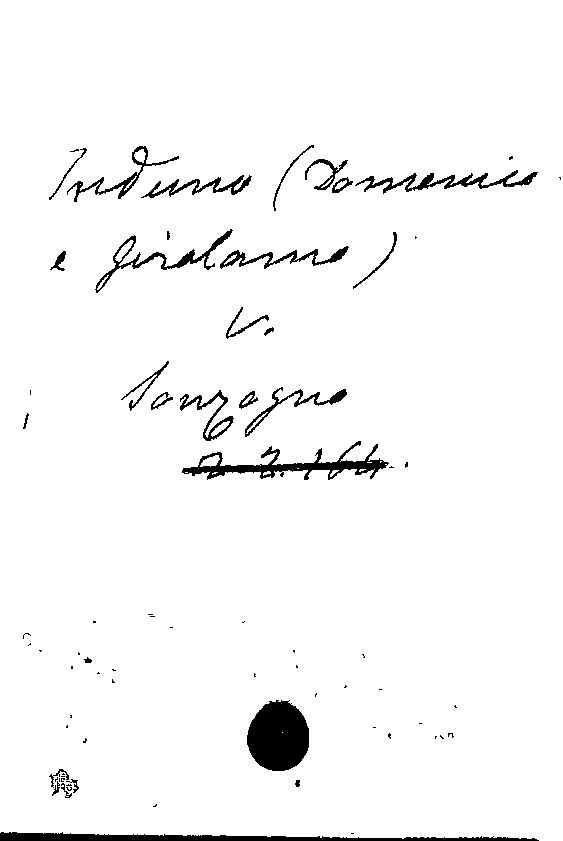 Induno (Domenico
e Girolamo)
V.
Sonzogno